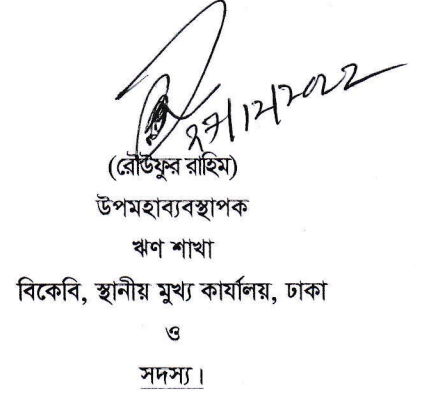 ২৮/১২/২০২২
(রৌউফুর রাহিম)
উপমহাব্যবস্থাপক
ঋণ শাখা
বিকেবি, স্থানীয় মুখ্য কার্যালয়, ঢাকা
ও
সদস্য।